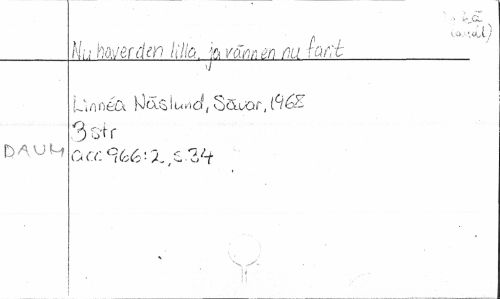 Nu haver den lilla, ja vännen nu farit
Linnéa Näslund, Sävar, 1968
3 str
DAUM acc 966:2, s.34